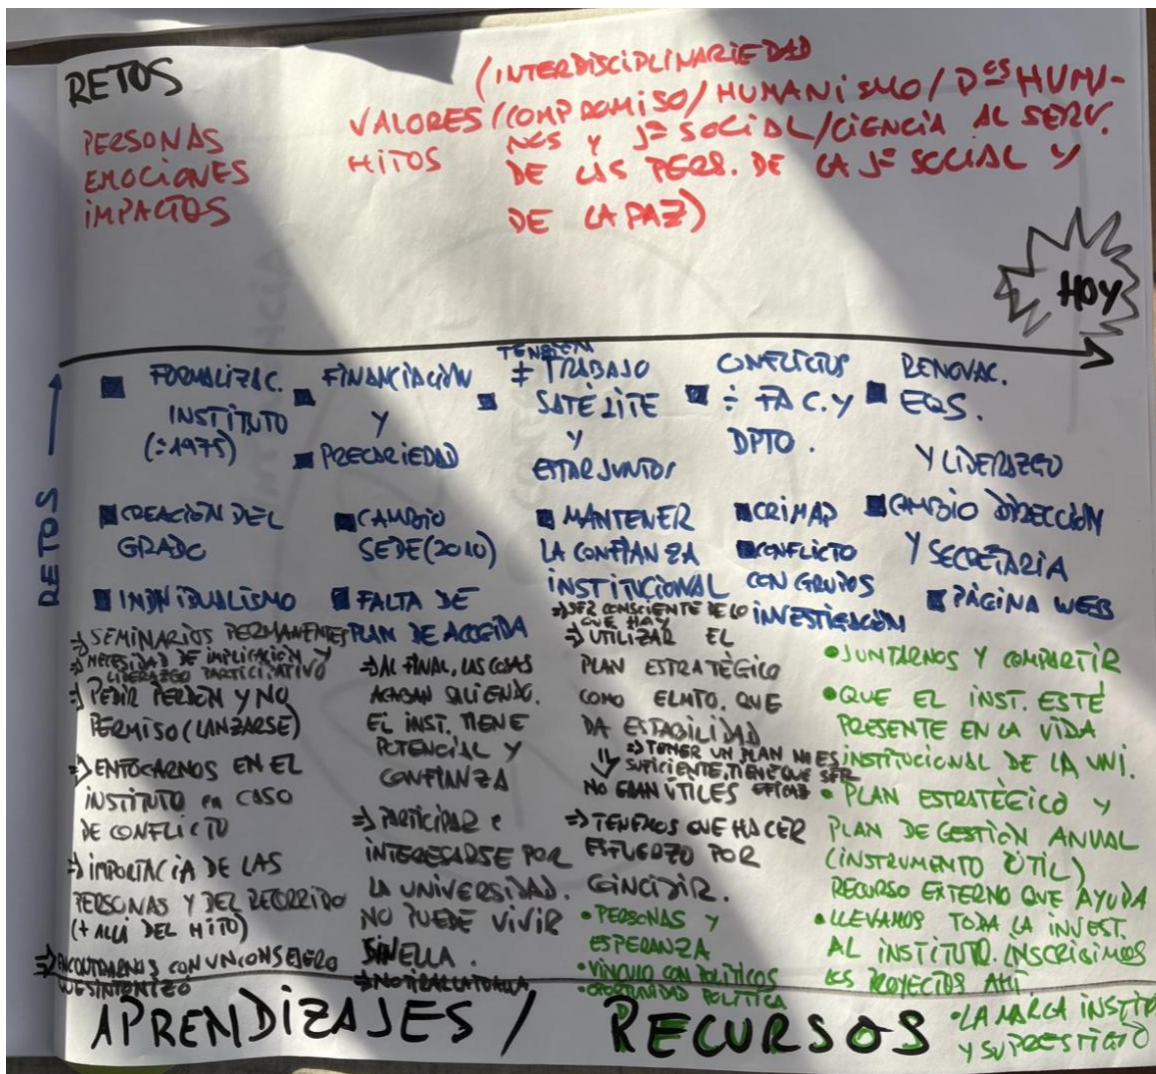 RETOS
PERSONAS
EMOCIONES
IMPACTOS
VALORES
HITOS
(INTERDISCIPLINARIEDAD
/COMPROMISO/HUMANISMO/DᵒˢHUMA-
NOS Y Jª SOCIAL/CIENCIA AL SERV.
DE LAS PERS. DE LA Jª SOCIAL Y
DE LA PAZ)
HOY
RETOS
■ FORMALIZAC.
INSTITUTO
(÷1975)
■ FINANCIACIÓN
Y
■ PRECARIEDAD
TENSIÓN
≠ TRABAJO
■ SATÉLITE
Y
ESTAR JUNTOS
CONFLICTOS
■ ÷ FAC. Y
DPTO.
RENOVAC.
■ EQS.
Y LIDERAZGO
■ CREACIÓN DEL
GRADO
■ CAMBIO
SEDE (2010)
■ MANTENER
LA CONFIANZA
INSTITUCIONAL
■ CRIMAP
■ CONFLICTO
CON GRUPOS
INVESTIGACIÓN
■ CAMBIO DIRECCIÓN
Y SECRETARIA
■ PÁGINA WEB
■ INDIVIDUALISMO
■ FALTA DE
PLAN DE ACOGIDA
⇒ SEMINARIOS PERMANENTES
⇒ NECESIDAD DE IMPLICACIÓN Y
LIDERAZGO PARTICIPATIVO
⇒ PEDIR PERDÓN Y NO
PERMISO (LANZARSE)
⇒ ENFOCARNOS EN EL
INSTITUTO en CASO
DE CONFLICTO
⇒ IMPORTACIA DE LAS
PERSONAS Y DEL RECORRIDO
(+ ALLÁ DEL HITO)
⇒ ENCONTRARNOS CON UN CONSEJERO
QUE SINTONIZÓ
⇒ AL FINAL, LAS COSAS
ACABAN SALIENDO.
EL INST. TIENE
POTENCIAL Y
CONFIANZA
⇒ PARTICIPAR e
INTERESARSE POR
LA UNIVERSIDAD.
NO PUEDE VIVIR
SIN ELLA.
⇒ NO TIRAR LA TOALLA
⇒ SER CONSCIENTE DE LO
QUE HAY
⇒ UTILIZAR EL
PLAN ESTRATÉGICO
COMO ELMTO. QUE
DA ESTABILIDAD
⇒ TENER UN PLAN NO ES
SUFICIENTE, TIENE QUE SER
EFICAZ
NO ERAN ÚTILES
⇒ TENEMOS QUE HACER
ESFUERZO POR
COINCIDIR.
• PERSONAS Y
ESPERANZA
• VÍNCULO CON POLÍTICOS
• OPORTUNIDAD POLÍTICA
• JUNTARNOS Y COMPARTIR
• QUE EL INST. ESTÉ
PRESENTE EN LA VIDA
INSTITUCIONAL DE LA UNI.
• PLAN ESTRATÉGICO Y
PLAN DE GESTIÓN ANUAL
(INSTRUMENTO ÚTIL)
RECURSO EXTERNO QUE AYUDA
• LLEVAMOS TODA LA INVEST.
AL INSTITUTO. INSCRIBIMOS
LOS PROYECTOS AHÍ
• LA MARCA INSTIT
Y SU PRESTIGIO
APRENDIZAJES / RECURSOS